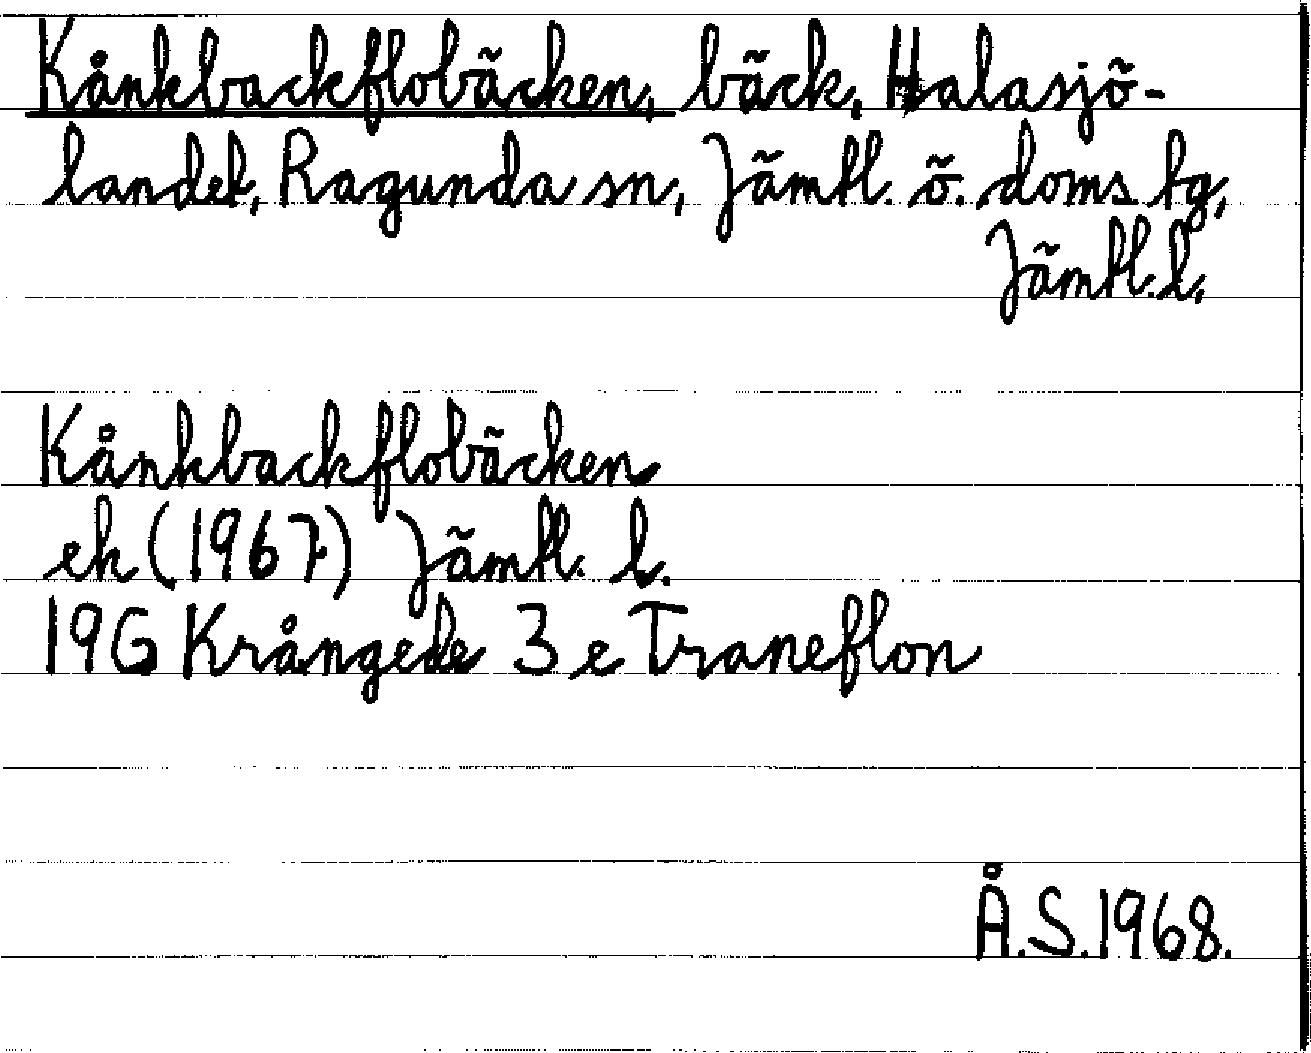 Kånkbackflobäcken, bäck, Halasjö-
landet, Ragunda sn, Jämtl. ö. doms tg,
Jämtl. l.
Kånkbackflobäcken
ek (1967) Jämtl. l.
19G Krångede 3 e Traneflon
Å.S.1968.